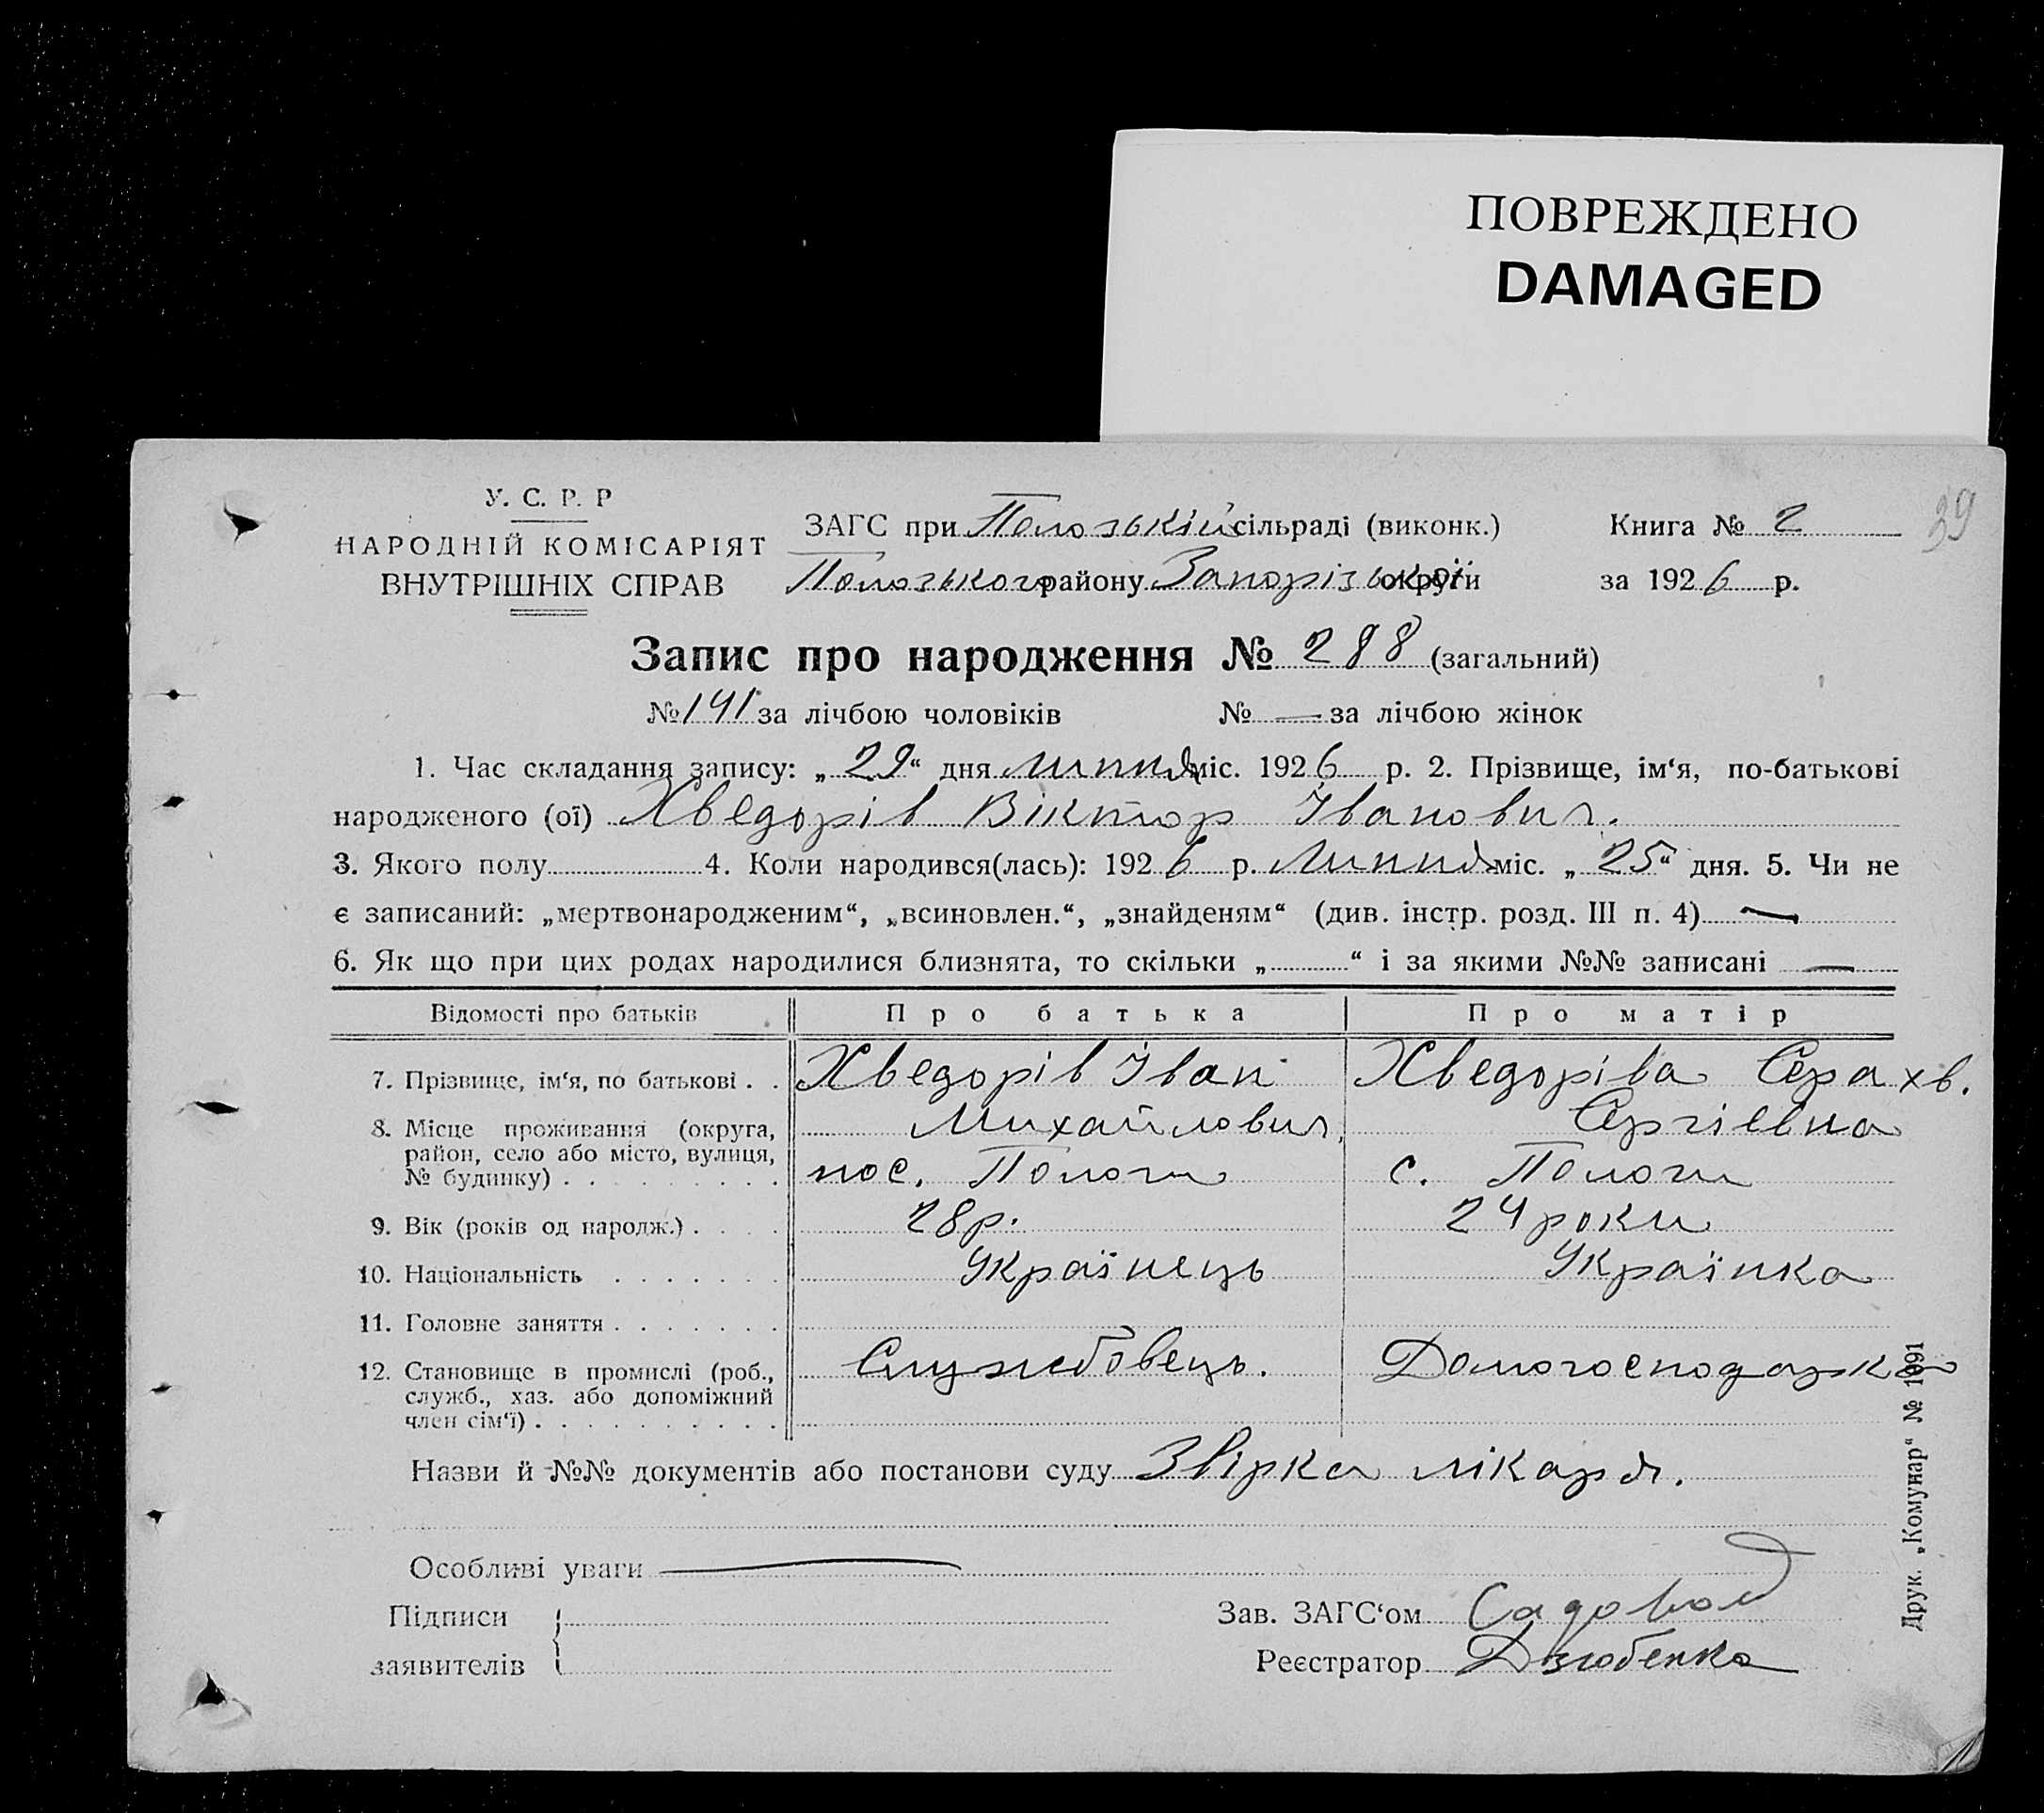 ПОВРЕЖДЕНО
DAMAGED
У. С. Р. Р
НАРОДНІЙ КОМІСАРІЯТ
ВНУТРІШНІХ СПРАВ
ЗАГС при Пологській сільраді (виконк.)
Пологського району Запорізької округи
Книга № 2
за 1926 р.
39
Запис про народження № 288 (загальний)
№ 141 за лічбою чоловіків № — за лічбою жінок
1. Час складання запису: „29“ дня липня міс. 1926 р. 2. Прізвище, ім‘я, по-батькові
народженого (ої) Хведорів Віктор Іванович.
3. Якого полу 4. Коли народився(лась): 1926 р. Липня міс. „25“ дня. 5. Чи не
є записаний: „мертвонародженим“, „всиновлен.“, „знайденям“ (див. інстр. розд. III п. 4) —
6. Як що при цих родах народилися близнята, то скільки „ “ і за якими №№ записані —
Відомості про батьків Про батька Про матір
7. Прізвище, ім‘я, по батькові . . Хведорів Іван Хведоріва Серахв.
Михайлович Сергіевна
8. Місце проживання (округа,
район, село або місто, вулиця,
№ будинку) . . . . . . . . . пос. Пологи с. Пологи
9. Вік (років од народж.) . . . . 28 р. 24 роки
10. Національність . . . . . . . Українець Українка
11. Головне заняття . . . . . . .
12. Становище в промислі (роб., Службовець. Домогосподарка
служб., хаз. або допоміжний
член сім‘ї) . . . . . . . . . .
Назви й №№ документів або постанови суду Звірка лікаря.
Особливі уваги —
Підписи
заявителів
Зав. ЗАГС‘ом Садовой
Реєстратор Дзюбенко
Друк. „Комунар“ № 1691